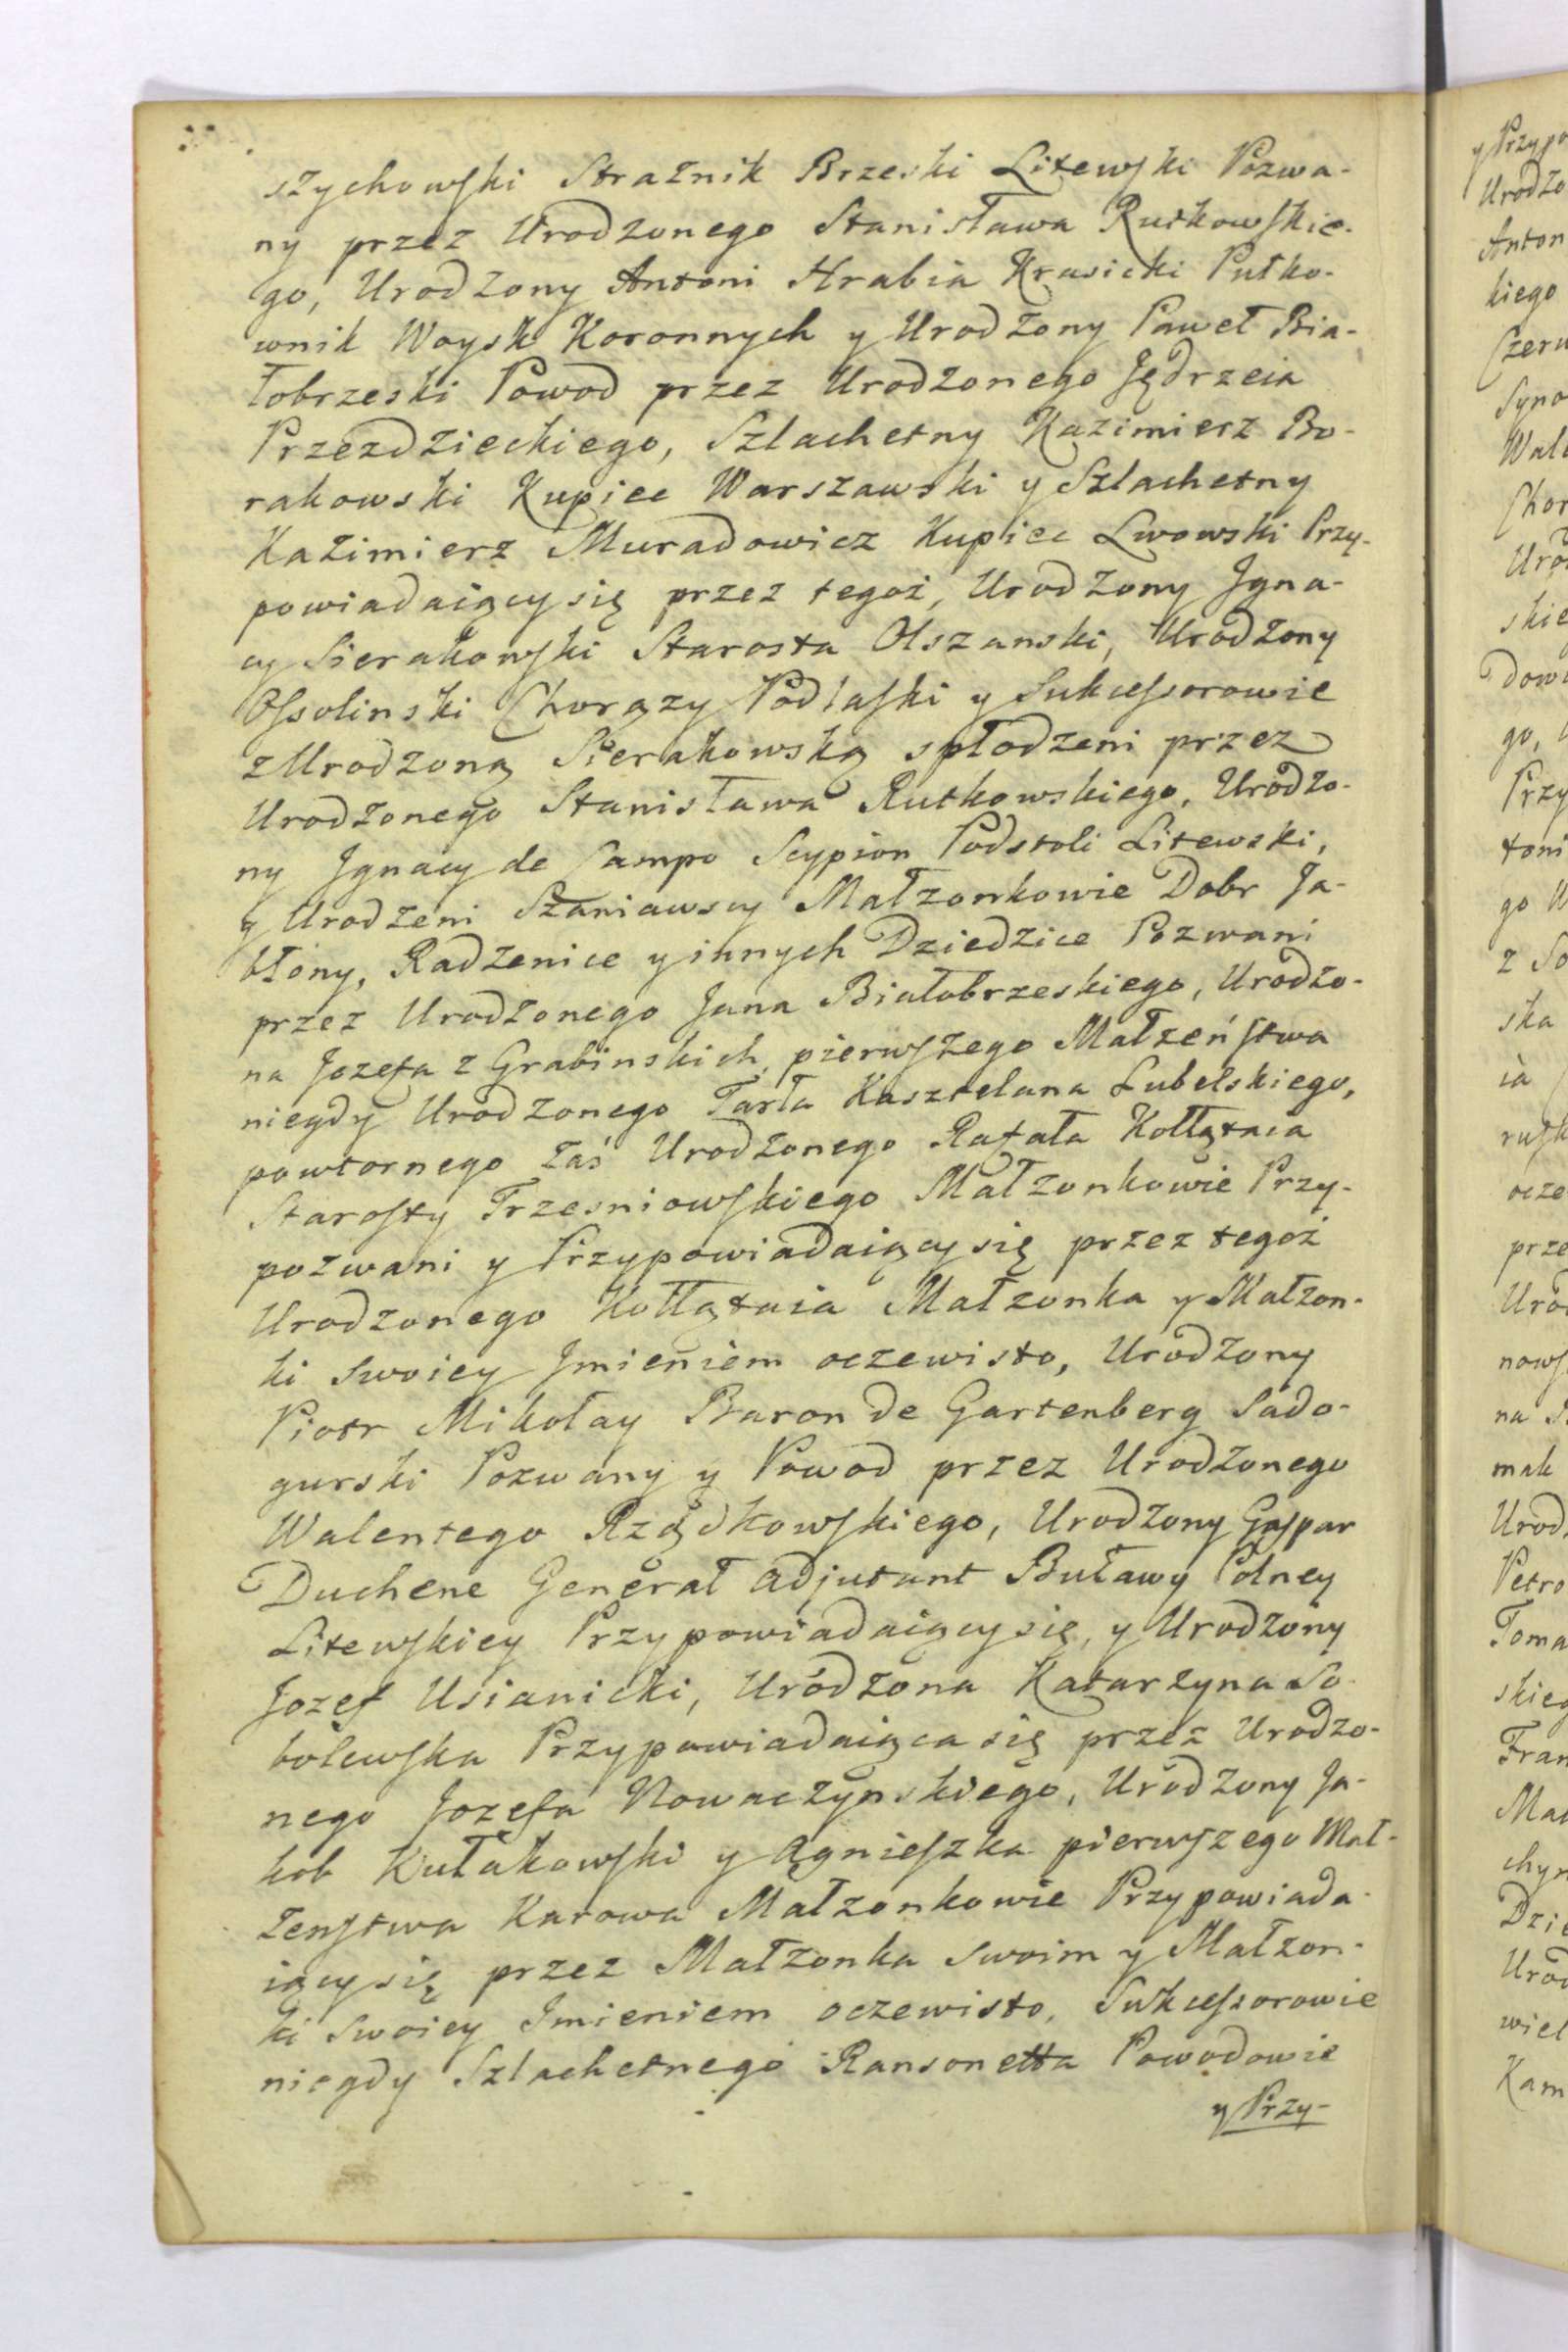 szychowski Strażnik Brzeski Litewski Pozwa-
ny przez Urodzonego Stanisława Rutkowskie-
go, Urodzony Antoni Hrabia Krasicki Pułko-
wnik Woysk Koronnych y Urodzony Paweł Bia-
łobrzeski Powod przez Urodzonego Jędrzeia
Przezdzieckiego, Szlachetny Kazimierz Bo-
rakowski Kupiec Warszawski y Szlachetny
Każimierz Muradowicz Kupiec Lwowski Przy-
powiadaiący się przez tegoż, Urodzony Igna-
cy Sierakowski Starosta Olszanski, Urodzony
Ossolinski Chorązy Podlaski y Sukcessorowie
z Urodzoną Sierakowską spłodzeni przez
Urodzonego Stanisława Rutkowskiego, Urodzo-
ny Ignacy de Campo Scypion Podstoli Litewski,
y Urodzeni Szaniawscy Małzonkowie Dobr Ja-
błony, Radzenice y innych Dziedzice Pozwani
przez Urodzonego Jana Białobrzeskiego, Urodzo-
na Jozefa z Grabinskich, pierwszego Małzeństwa
niegdy Urodzonego Tarła Kasztelana Lubelskiego,
powtornego zaś Urodzonego Rafała Kołłątaia
Starosty Trzesniowskiego Małzonkowie Przy-
pozwani y Przypowiadaiący się przez tegoż
Urodzonego Kołłątaia Małzonka y Małzon-
ki swoiey Imieniem oczewisto, Urodzony
Piotr Mikołay Baron de Gartenberg Sado-
gurski Pozwany y Powod przez Urodzonego
Walentego Rządkowskiego, Urodzony Gaspar
Duchene Generał Adjutant Buławy Polney
Litewskiey Przypowiadaiący się, y Urodzony
Jozef Usianicki, Urodzona Katarzyna So-
bolewska Przypowiadaiąca się przez Urodzo-
nego Jozefa Nowaczynskiego, Urodzony Ja-
kob Kułakowski y Agnieszka pierwszego Mał-
zenstwa Karowa Małzonkowie Przypowiada-
iący się przez Małzonka swoim y Małzon-
ki swoiey Imieniem oczewisto, Sukcessorowie
niegdy Szlachetnego Ransonetta Powodowie
y Przy-